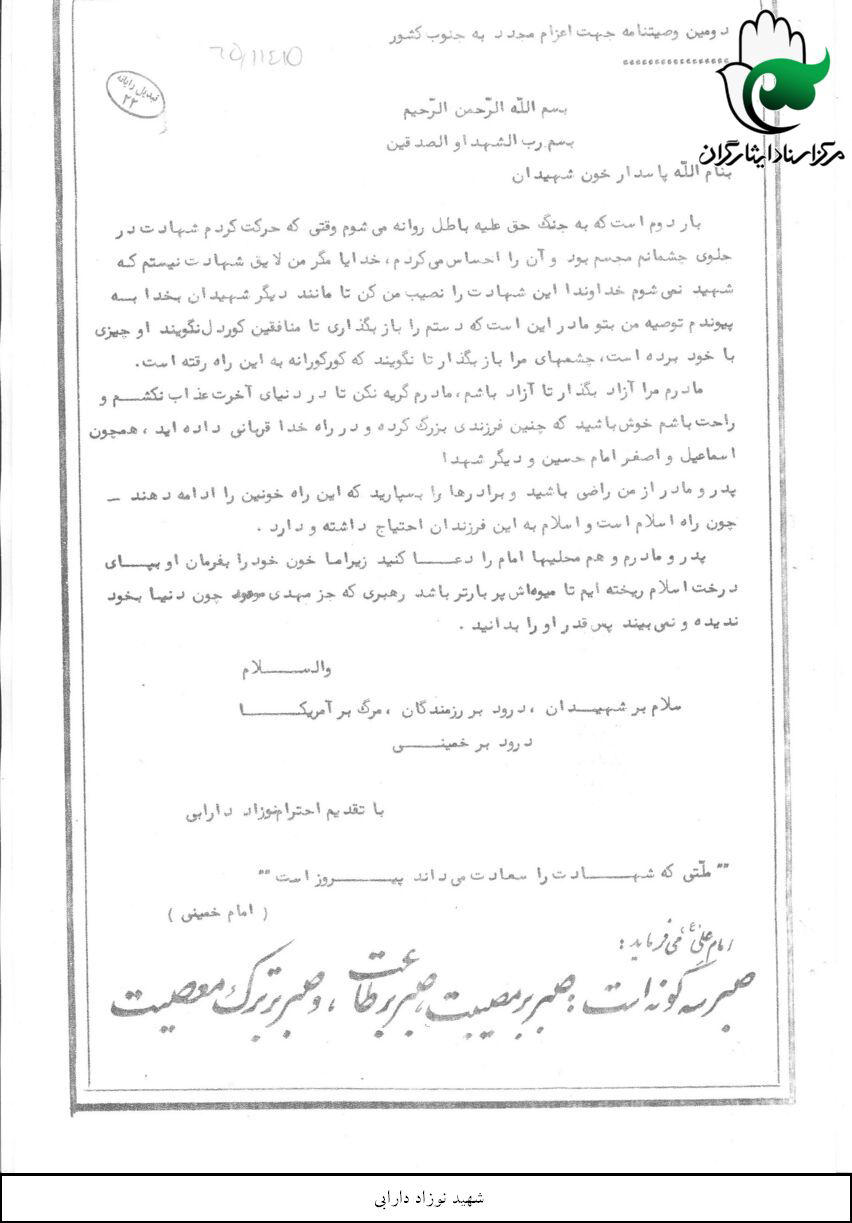 دومین وصیتنامه جهت اعزام مجدد به جنوب کشور
تبدیل رایانه
۲۲
مرکز اسناد ایثارگران
بسم اللّه الرّحمن الرّحیم
بسم رب الشهدا و الصدقین
بنام اللّه پاسدار خون شهیدان
بار دوم است که به جنگ حق علیه باطل روانه می شوم وقتی که حرکت کردم شهادت در
جلوی چشمانم مجسم بود و آن را احساس می کردم، خدایا مگر من لایق شهادت نیستم که
شهید نمی شوم خداوندا این شهادت را نصیب من کن تا مانند دیگر شهیدان بخدا بـه
پیوندم توصیه من بتو مادر این است که دستم را باز بگذاری تا منافقین کوردل نگویند او چیزی
با خود برده است، چشمهای مرا باز بگذار تا نگویند که کورکورانه به این راه رقته است.
مادرم مرا آزاد بگذار تا آزاد باشم، مادرم گریه نکن تا در دنیای آخرت عذاب نکشـم و
راحت باشم خوش باشید که چنین فرزندی بزرگ کرده و در راه خدا قربانی داده اید، همچون
اسماعیل و اصغر امام حسین و دیگر شهدا
پدر و مادر از من راضی باشید و برادرها را بسپارید که این راه خونین را ادامه دهند _
چون راه اسلام است و اسلام به این فرزندان احتیاج داشته و دارد .
پدر و مادرم و هم محلیها امام را دعـــا کنید زیرا ما خون خود را بفرمان او بپـای
درخت اسلام ریخته ایم تا میوه‌اش پر بارتر باشد رهبری که جز مهدی موعود چون دنیـا بخود
ندیده و نمی بیند پس قدر او را بدانید .
والـســـلام
سلام بر شهیـــدان ، درود بر رزمندگان ، مرگ بر آمریکــــا
درود بر خمینــی
با تقدیم احترام نوزاد دارابی
"ملّتی که شهــــادت را سعادت می داند پیــــروز است"
( امام خمینی )
امام علی (ع) می فرماید :
صبر سه گونه است : صبر بر مصیبت ، صبر بر طاعت ، و صبر بر ترک معصیت
شهید نوزاد دارابی